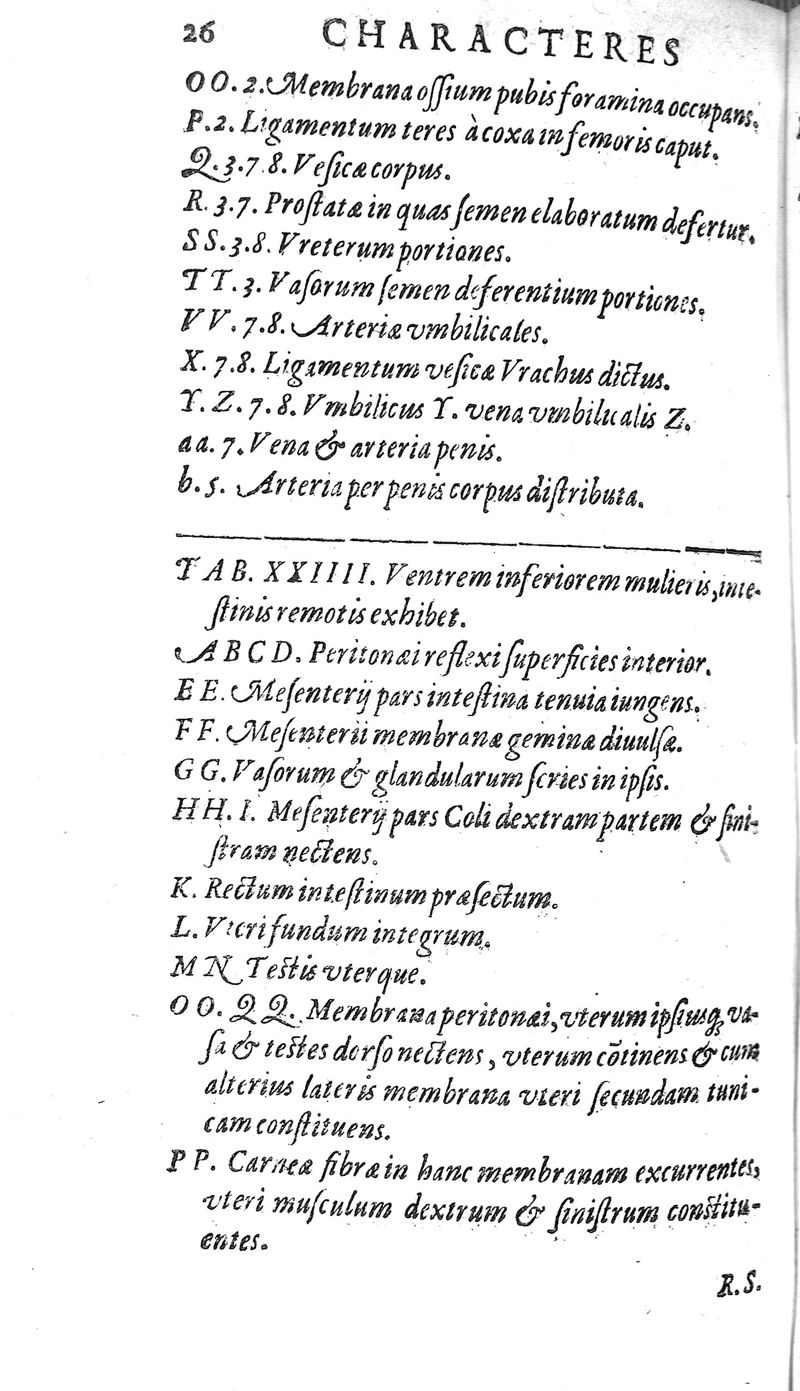 26 CHARACTERES
O O. 2. Membrana oſſium pubis foramina occupans.
P. 2. Ligamentum teres à coxa in femoris caput.
Q. 3. 7. 8. Veſicæ corpus.
R. 3. 7. Proſtatæ in quas ſemen elaboratum defertur.
S S. 3. 8. Vreterum portiones.
T T. 3. Vaſorum ſemen deferentium portiones.
V V. 7. 8. Arteriæ vmbilicales.
X. 7. 8. Ligamentum veſicæ Vrachus dictus.
Y. Z. 7. 8. Vmbilicus Y. vena vmbilicalis Z.
aa. 7. Vena & arteria penis.
b. 5. Arteria per penis corpus diſtributa.
T A B. XXIIII. Ventrem inferiorem mulieris, inte-
ſtinis remotis exhibet.
A B C D. Peritonæi reflexi ſuperficies interior.
E E. Meſenterij pars inteſtina tenuia iungens.
F F. Meſenterii membranæ geminæ diuulſæ.
G G. Vaſorum & glandularum ſeries in ipſis.
H H. I. Meſenterij pars Coli dextram partem & ſini-
ſtram nectens.
K. Rectum inteſtinum præſectum.
L. Vteri fundum integrum.
M N Teſtis vterque.
O O. Q Q. Membrana peritonæi, vterum ipſiusq; va-
ſa & teſtes dorſo nectens, vterum cõtinens & cum
alterius lateris membrana vteri ſecundam tuni-
cam conſtituens.
P P. Carneæ fibræ in hanc membranam excurrentes,
vteri muſculum dextrum & ſiniſtrum conſtitu-
entes.
R. S.